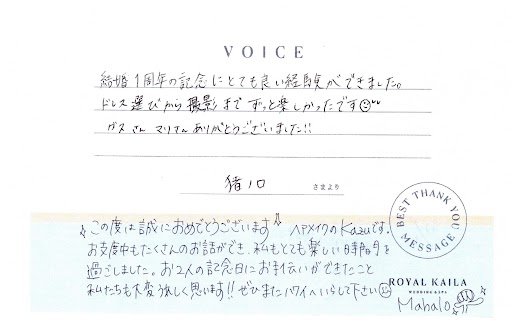 VOICE
結婚1周年の記念にとても良い経験ができました。
ドレス選びから撮影までずっと楽しかったです
ガスさん マリさんありがとうございました!!
猪口 さまより
BEST THANK YOU MESSAGE
この度は誠におめでとうございます ヘアメイクのKazuです。
お支度中もたくさんのお話ができ、私もとても楽しい時間を
過ごしました。お2人の記念日にお手伝いができたこと
私たちも大変うれしく思います!! ぜひまたハワイへいらして下さい
ROYAL KAILA
WEDDING & SPA
Mahalo